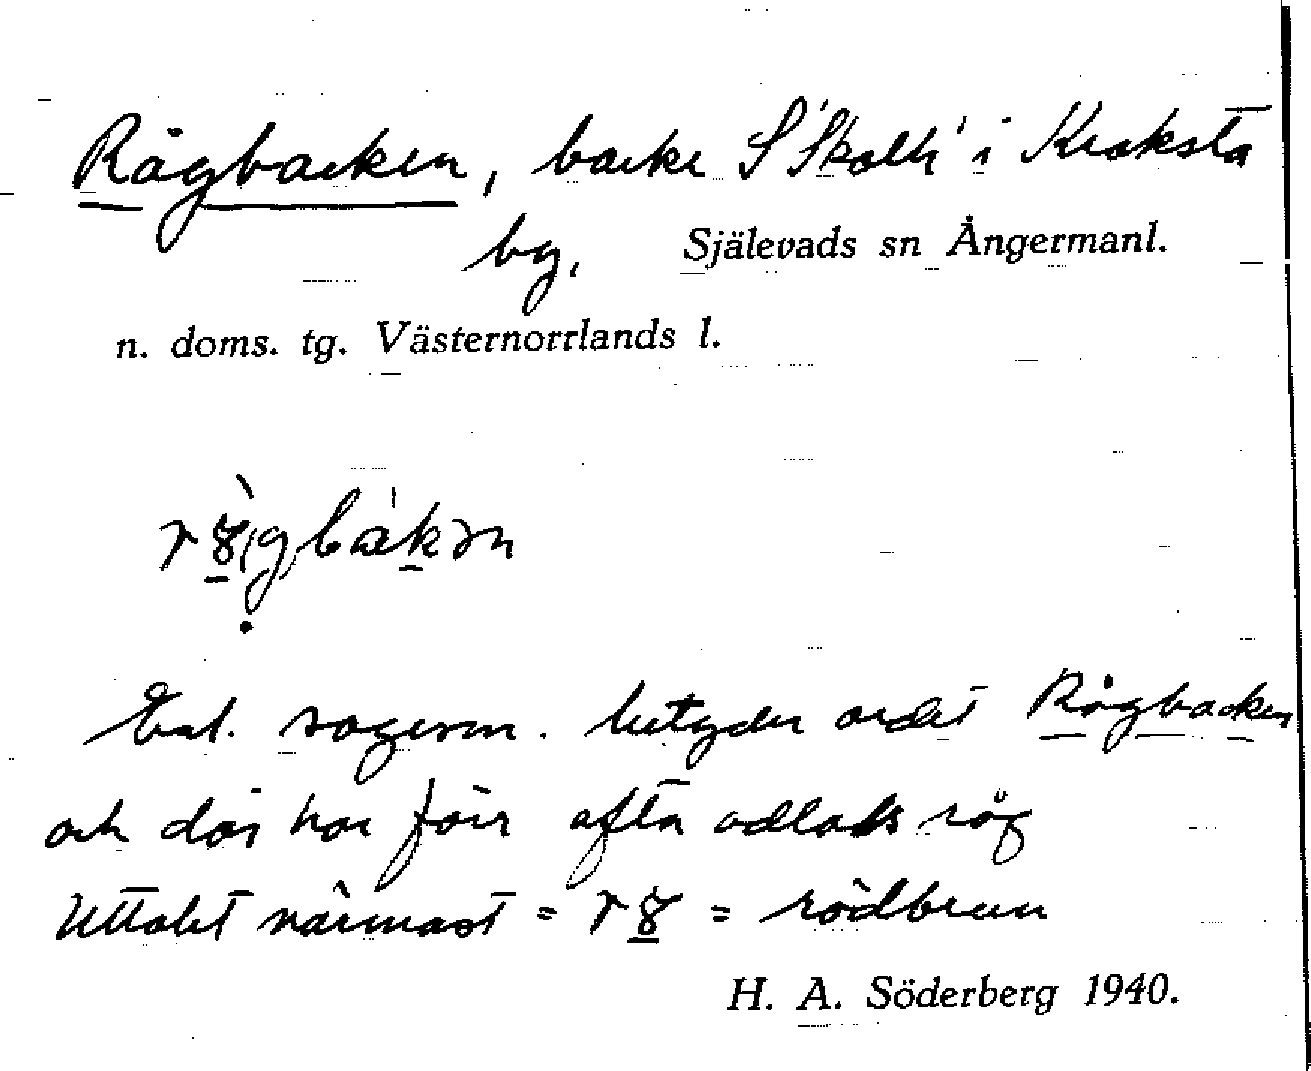 Rågbacken, backe S 'Skolh' i Kroksta
by, Själevads sn Ångermanl.
n. doms. tg. Västernorrlands l.
Enl. sagesm. betyder ordet Rågbacken
och där har förr ofta odlats råg
Uttalet närmast = = rödbrun
H. A. Söderberg 1940.